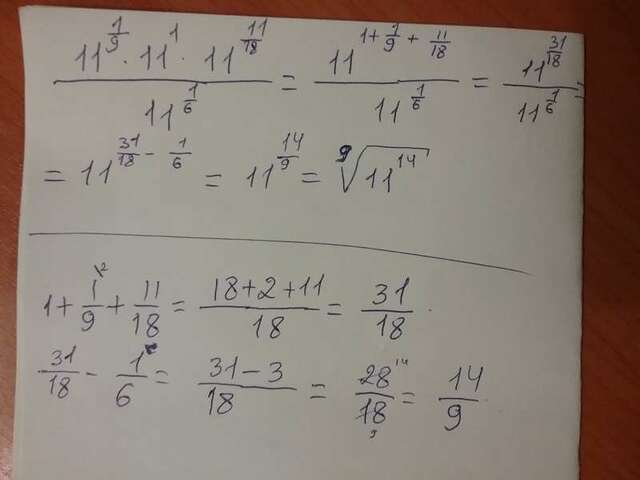 11^{1/9} · 11^1 · 11^{11/18} / 11^{1/6} = 11^{1+1/9+11/18} / 11^{1/6} = 11^{31/18} / 11^{1/6} =
= 11^{31/18 - 1/6} = 11^{14/9} = ⁹√(11^{14})
1 + 1/9 + 11/18 = (18+2+11)/18 = 31/18 .
31/18 - 1/6 = (31-3)/18 = 28/18 = 14/9 .